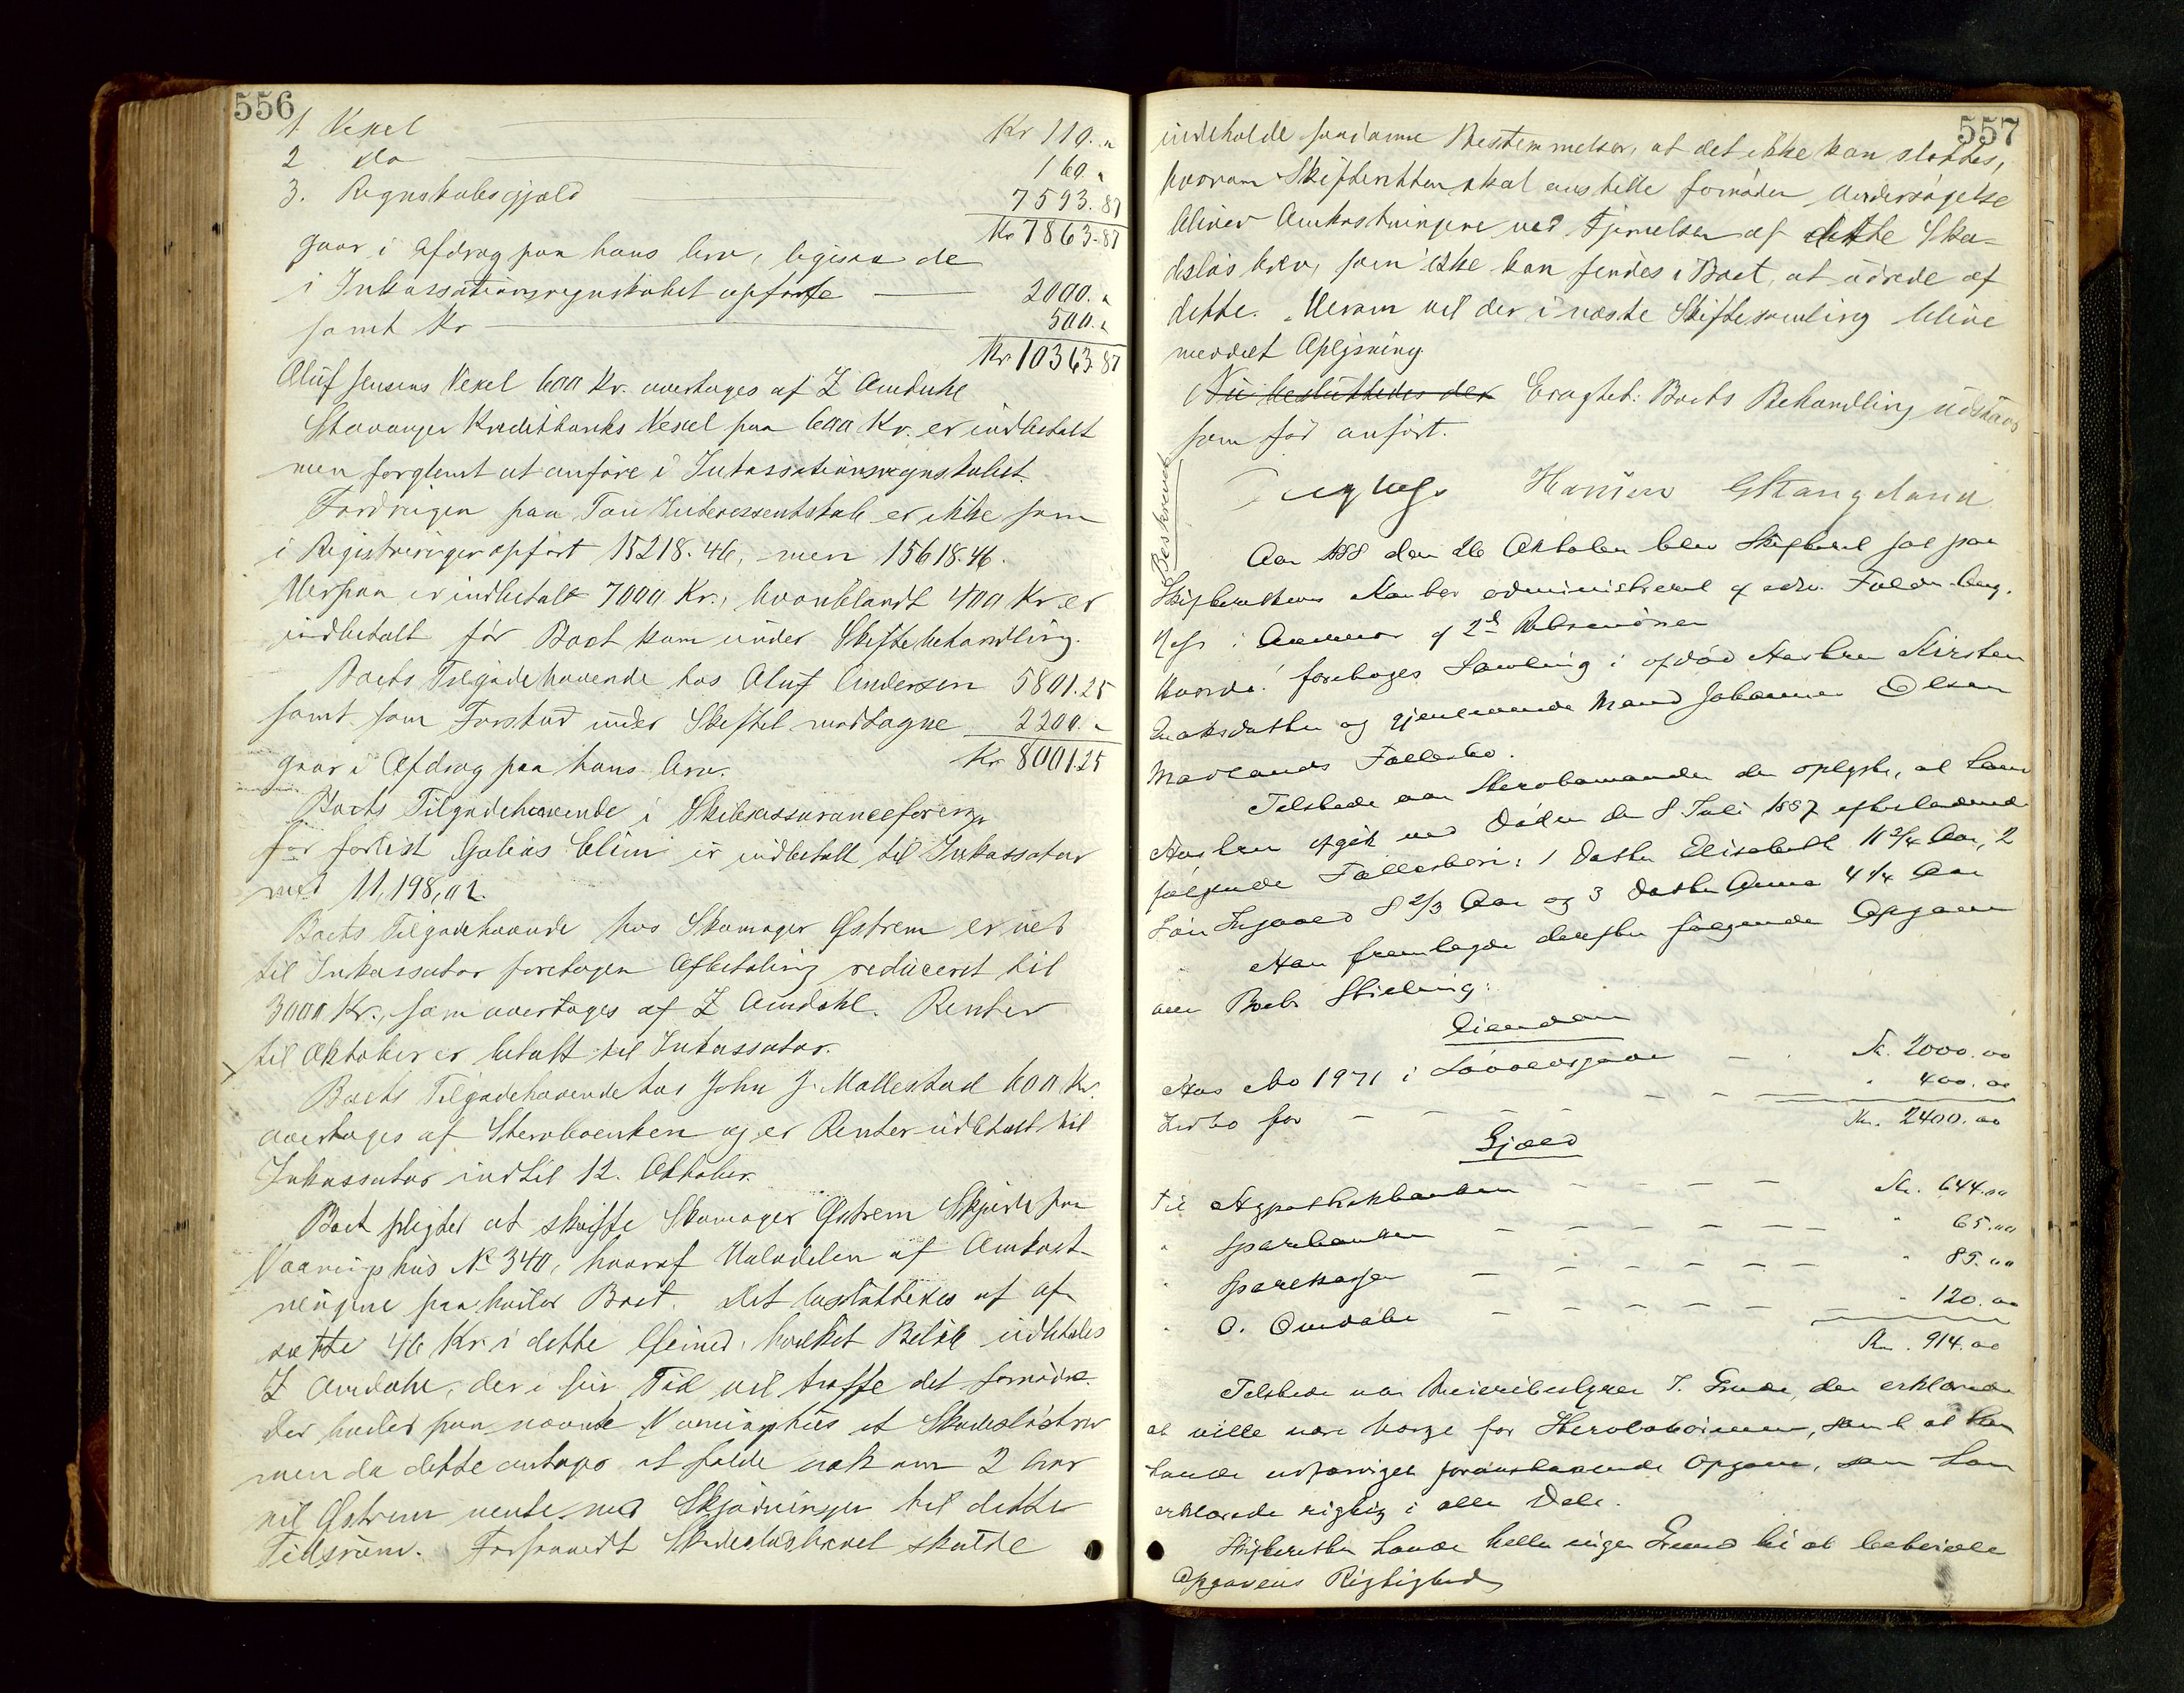 556
1 Vexel Kr 110. "
2 do 160. "
3. Regnskabsgjæld 7593.87
Kr 7863.87
gaar i Afdrag paa hans Arv, ligesaa de
i Inkassationsregnskabet opførte 2000. "
samt Kr 500. "
Kr 10363.87
Oluf Jensens Vexel 600 Kr. overtages af Z Omdahl
Stavanger Kreditbanks Vexel paa 600 Kr. er indbetalt
men forglemt at anføre i Inkassationsregnskabet.
Fordringen paa Tou Interessentskab er ikke som
i Registreringen opført 15218.46, men 15618.46.
Herpaa er indbetalt 7000 Kr., hvoriblandt 400 Kr. er
indbetalt før Boet kom under Skiftebehandling.
Boets Tilgodehavende hos Oluf Andersen 5801.25
samt som Forskud under Skiftet modtagne 2200. "
Kr 8001.25
gaar i Afdrag paa hans Arv.
Boets Tilgodehavende i Skibsassuranceforeng.
for forlist Galeas Elim er indbetalt til Inkassator
med 11,198,02.
Boets Tilgodehavende hos Skomager Østrem er ved
til Inkassator foretagen Afbetaling reduceret til
3000 Kr., som overtages af Z Omdahl. Renter
til Oktober er betalt til Inkassator.
Boets Tilgodehavende hos John J. Mollestad 600 Kr.
overtages af Stervboenken og er Renter udbetalt til
Inkassator indtil 12. Oktober.
Boet pligter at skaffe Skomager Østrem Skjøde paa
Vaaningshus No 340, hvoraf Halvdelen af Omkost-
ningerne paahviler Boet. Det besluttedes at af-
sætte 46 Kr. i dette Øiemed, hvilket Beløb udbetales
Z Omdahl, der i sin Tid vil træffe det fornødne.
Der hviler paa nævnte Vaaningshus et Skadesløsbrev
men da dette antages at falde væk om 2 Aar
vil Østrem vente med Skjødningen til dette
Tidsrum. Forsaavidt Skadesløsbrevet skulde
557
indeholde saadanne Bestemmelser, at det ikke kan slettes,
hvorom Skifteretten skal anstille fornøden Undersøgelse
bliver Omkostningerne ved Fjernelsen af dette Ska-
desløsbrev, som ikke kan findes i Boet, at udrede af
dette. Herom vil der i næste Skiftesamling blive
meddelt Oplysning.
Nu besluttedes der Eragtet: Boets Behandling udstaar
som før anført.
Hansen GStangeland
Beskrevet
Aar 1888 den 26 Oktober blev Skifteret sat paa
Skifterettens Kontor administreret af edsv. Fuldm.
i Overvær af 2de Vidner
Hvorda! foretoges Samling i afdød Hustru Kirsten
Isaksdatter og gjenlevende Mand Johannes Olsen
Mavlands Fællesbo.
Tilstede var Stervbomanden der oplyste, at hans
Hustru afgik ved Døden den 8 Juli 1887 efterladende
følgende Fællesbørn: 1 Datter Elisabeth 11 3/4 Aar, 2
Søn Ingvald 8 2/3 Aar og 3 Datter Anna 4 1/4 Aar
Han fremlagde derefter følgende Opgave
over Boets Stilling:
Eiendom
Hus No 1971 i Løvoldsgaden Kr. 2000.00
Indbo for " 400.00
Kr. 2400.00
Gjæld
Til Hypothekbanken Kr. 644.00
" Sparebanken " 65.00
" Sparekassen " 85.00
" O. Omdahl " 120.00
Kr. 914.00
Tilstede var Meieribestyrer T. Grude, der erklærede
at ville være Værge for Stervbobørnene, samt at han
havde udfærdiget foranstaaende Opgave, som han
erklærede rigtig i alle Dele.
Skifteretten havde heller ingen Grund til at betvivle
Opgavens Rigtighed